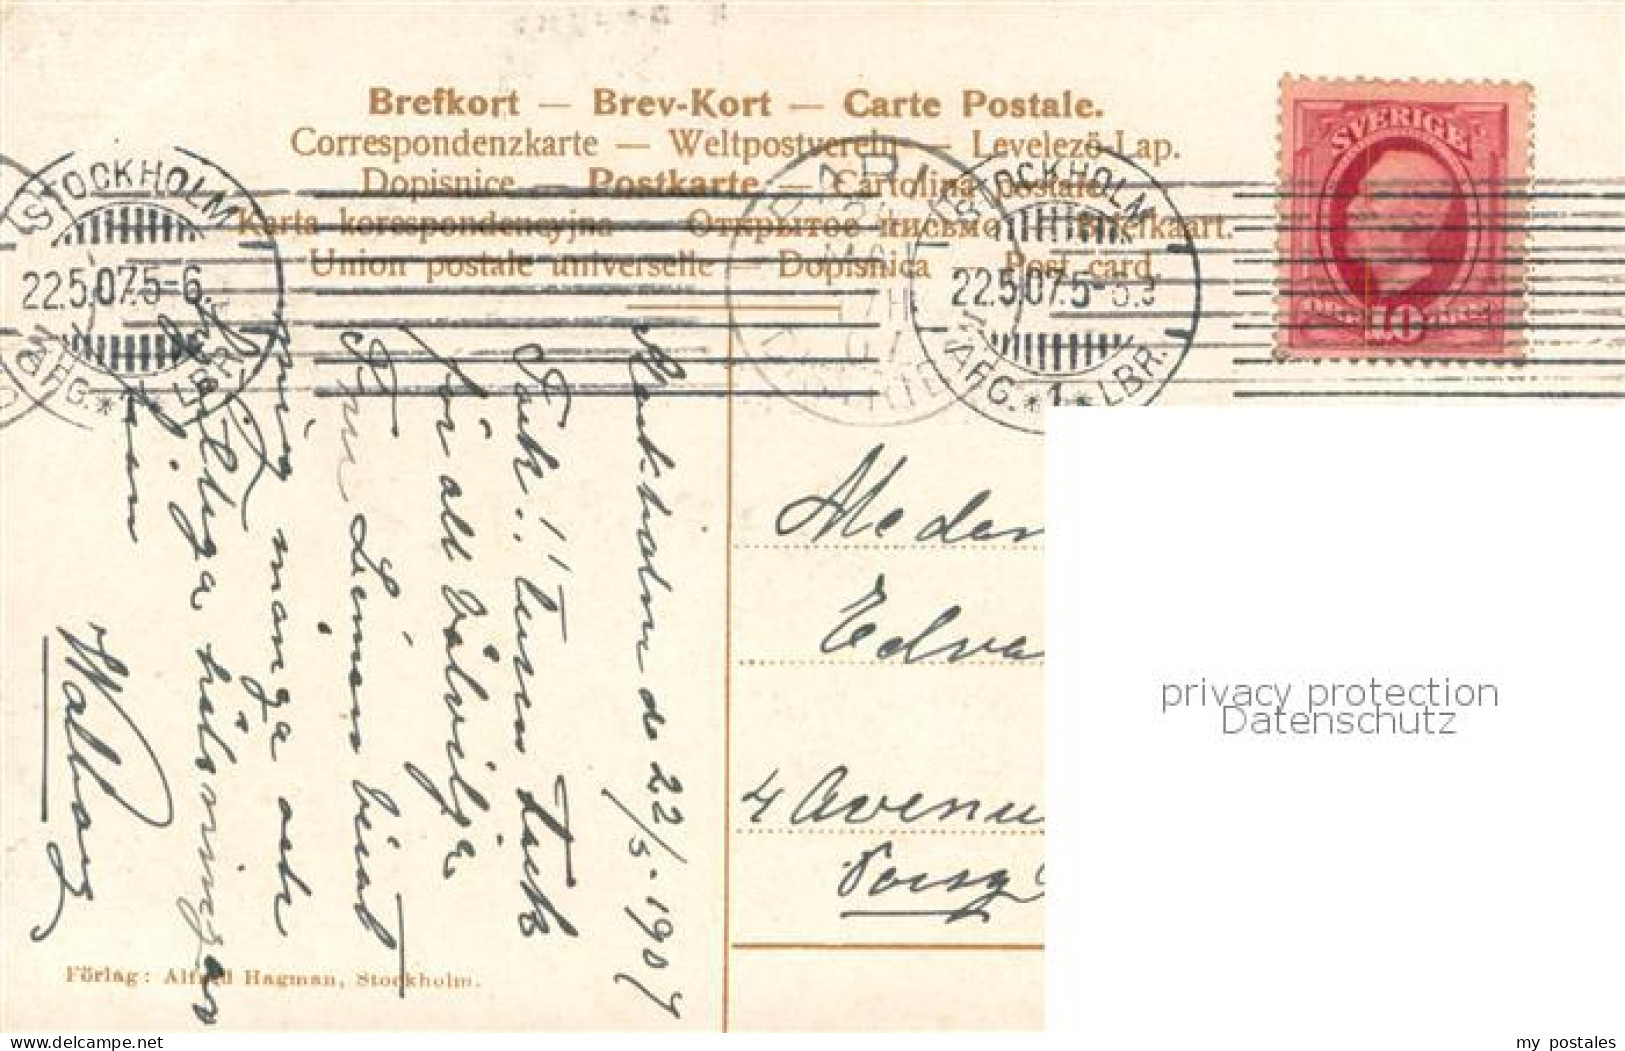 Brefkort — Brev-Kort — Carte Postale.
Correspondenzkarte — Weltpostverein — Levelezö-Lap.
Dopisnice — Postkarte — Cartolina postale
Karta korespondencyjna — Открытое письмо — Briefkaart.
Union postale universelle — Dopisnica — Post card.
STOCKHOLM
22.5.07.5-6.
AFG.
LBR.
STOCKHOLM
22.5.07.5-
AFG. *1* LBR.
PARIS
SVERIGE
10
Stockholm de 22/5. 1907
Tack!! tusen tack
för all välvilja
Fru
visat
mig många och
hjärtliga hälsningar
från
Edva
4 Avenu
Förlag: Alfred Hagman, Stockholm.
privacy protection
Datenschutz
my postales